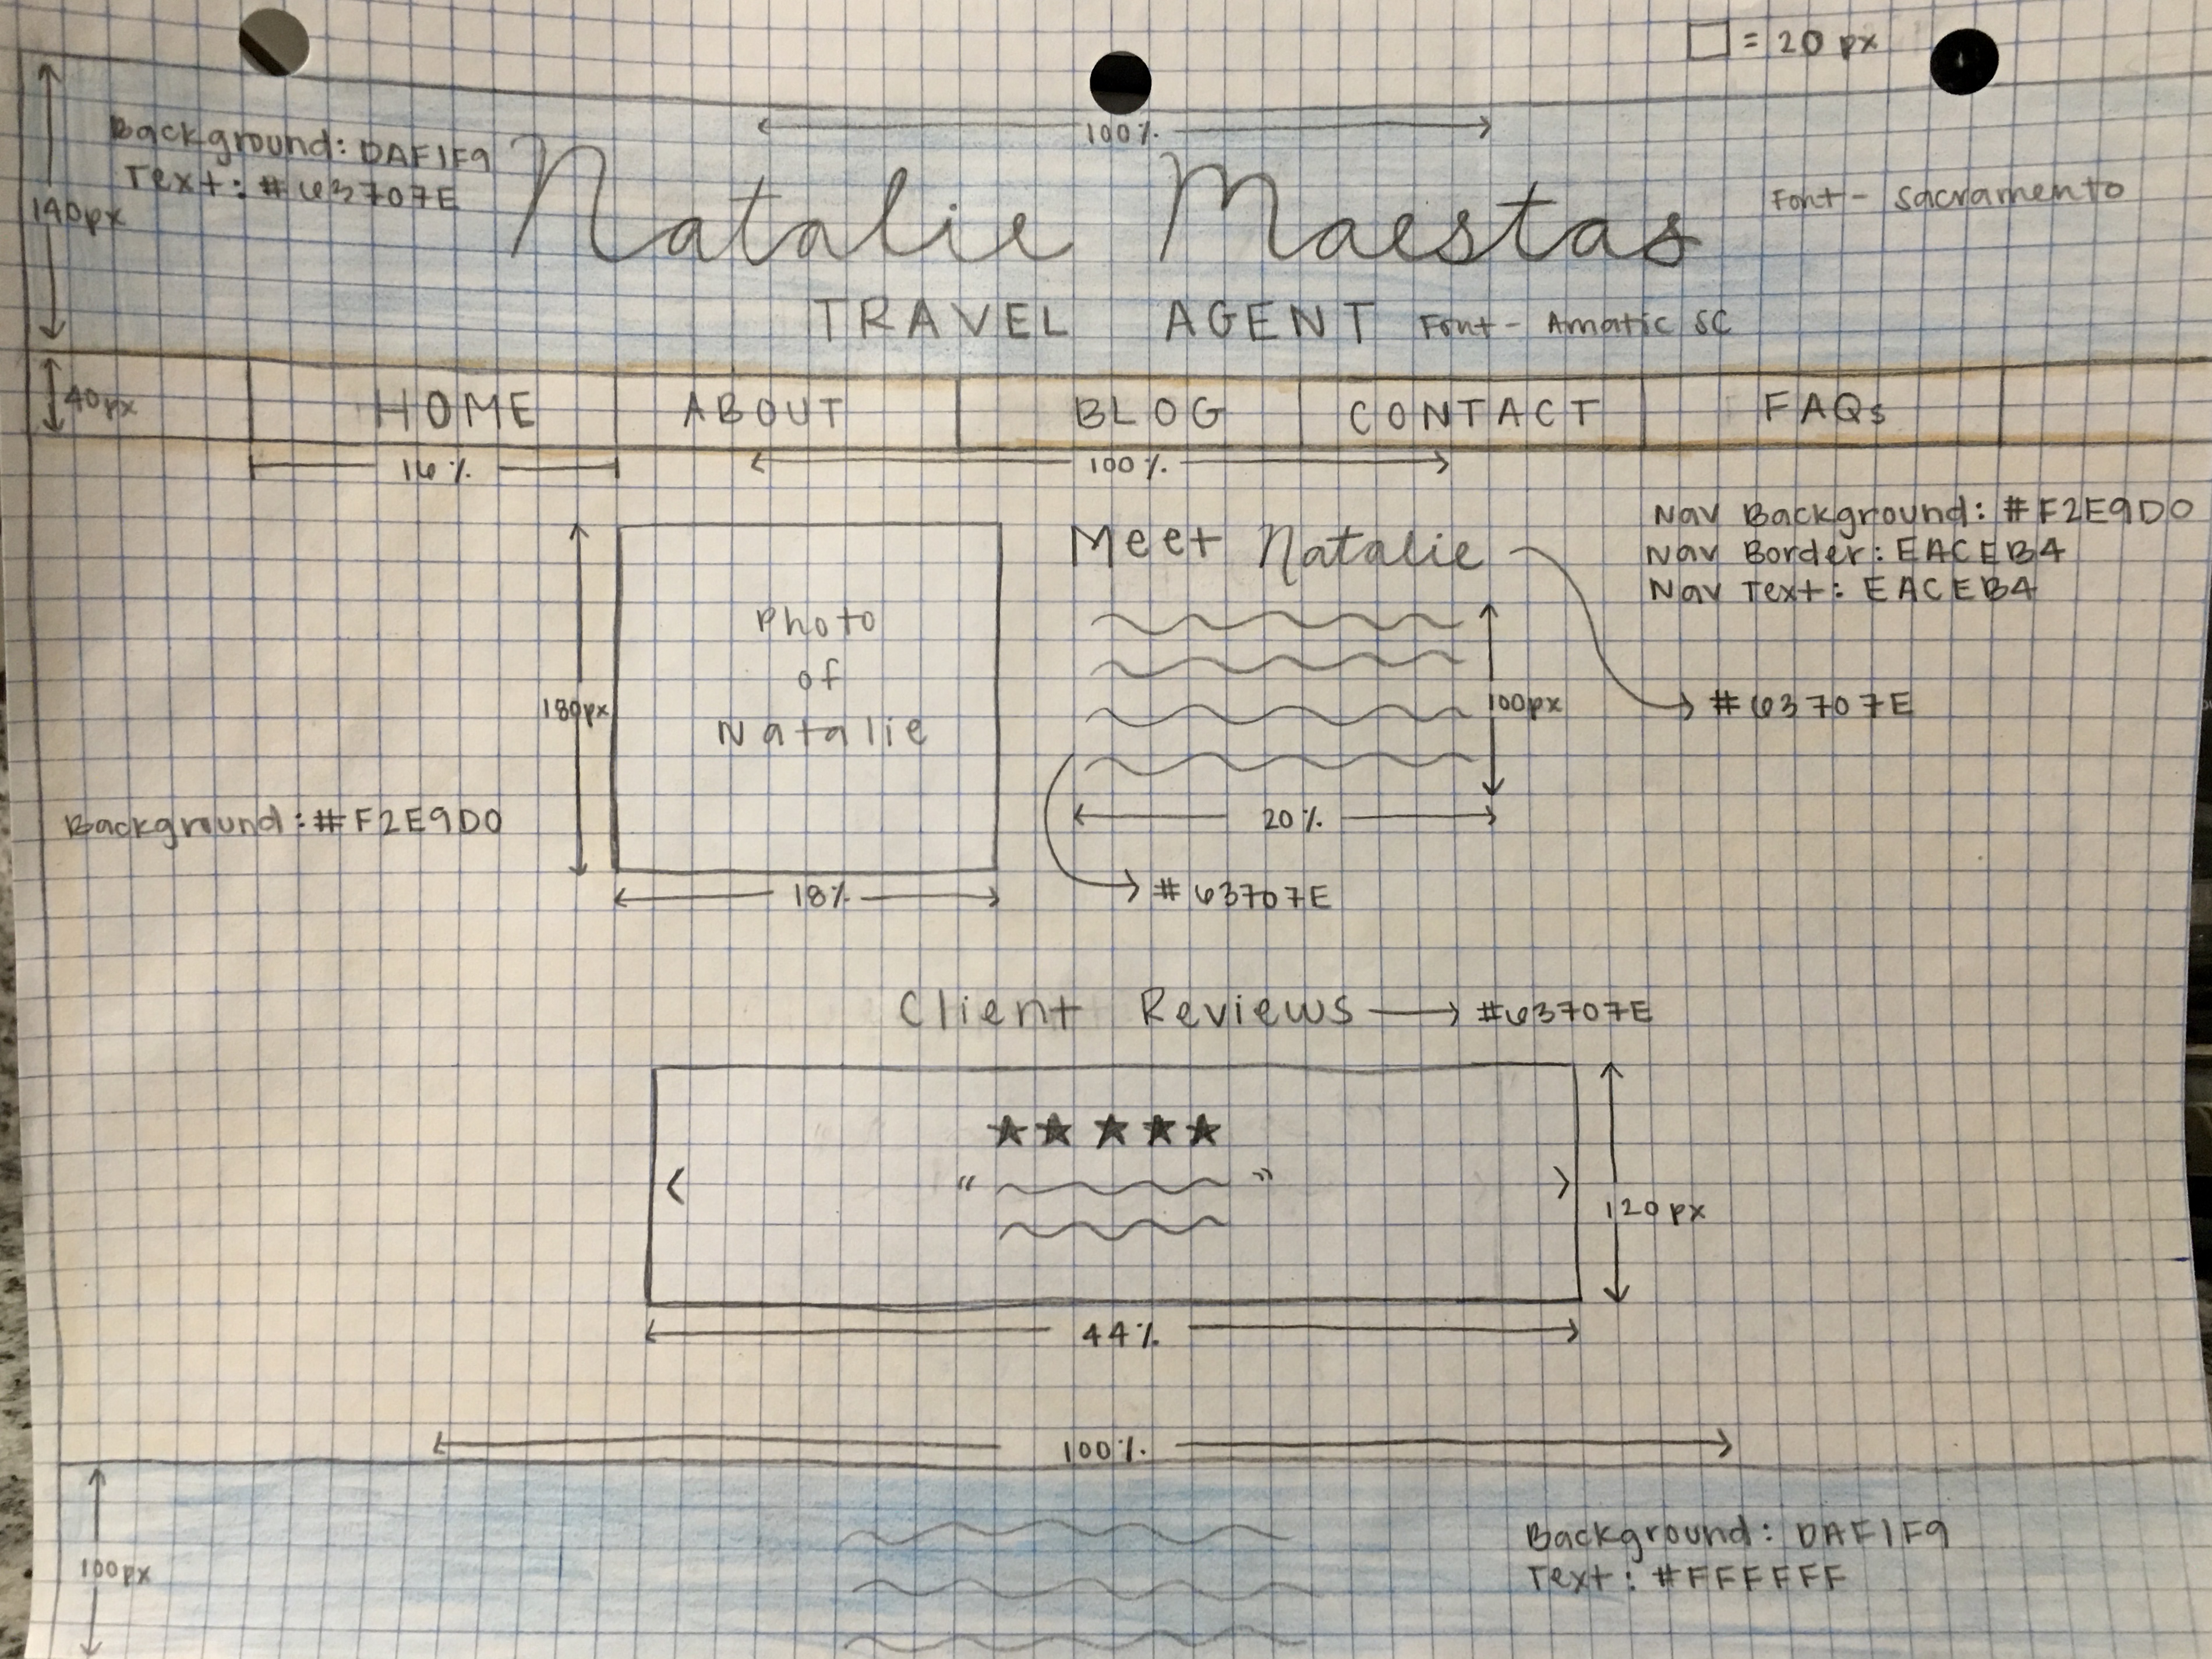 □ = 20 px
100%
Background: DAF1F9
Text: #63707E
140px
Natalie Maestas
Font - Sacramento
TRAVEL AGENT
Font - Amatic SC
40px
HOME ABOUT BLOG CONTACT FAQs
16%
100%
Nav Background: #F2E9D0
Nav Border: EACEB4
Nav Text: EACEB4
180px
Photo
of
Natalie
Meet Natalie
#63707E
100px
20%
#63707E
Background: #F2E9D0
18%
Client Reviews
#63707E
★★★★★
< “ ” >
120px
44%
100%
100px
Background: DAF1F9
Text: #FFFFFF